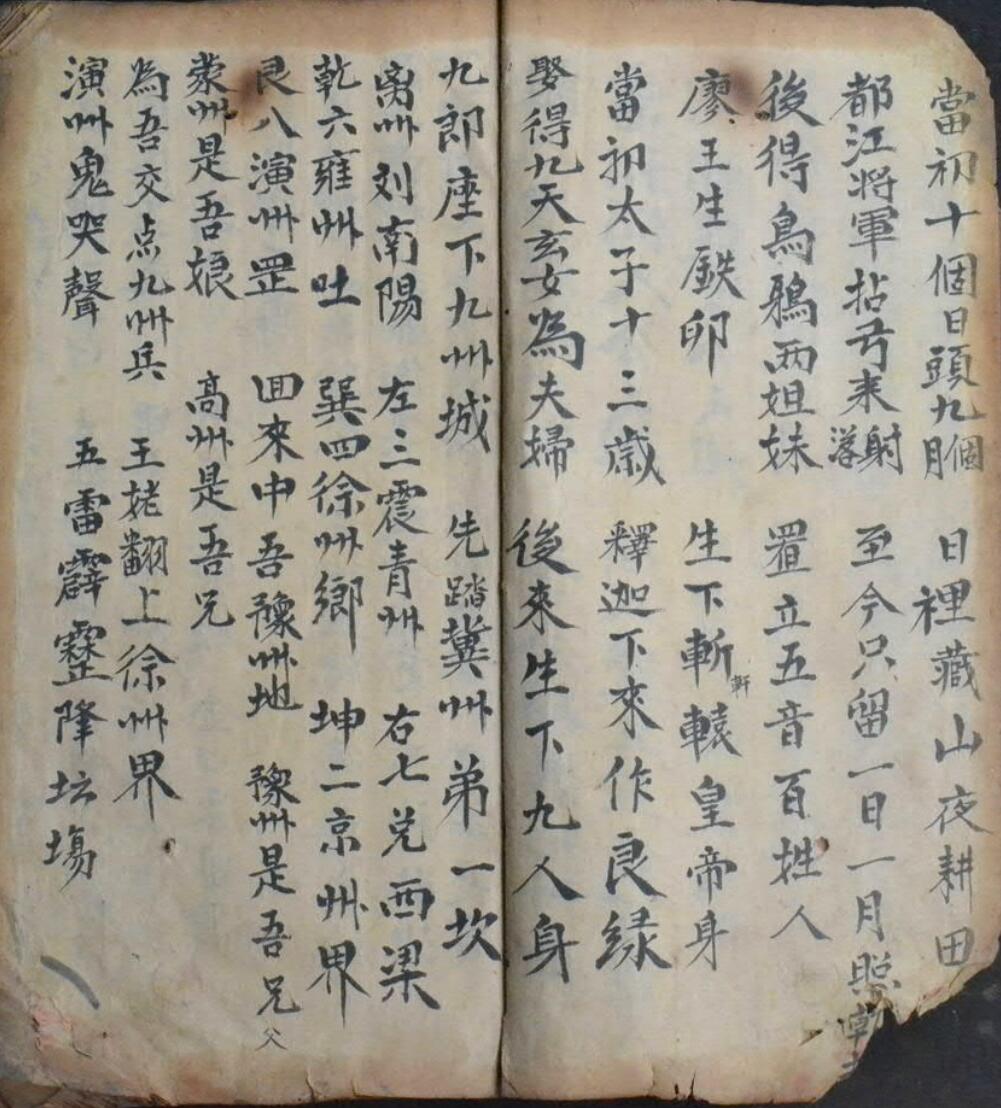 當初十個日頭九個月 日裡藏山夜耕田
都江將軍拈弓来射落 至今只留一日一月照乾
後得鳥鴉両姐妹 置立五音百姓人
廖王生鉄卵 生下斬軒轅皇帝身
當初太子十三歲 釋迦下來作良緣
娶得九天玄女為夫婦 後來生下九人身
九郎座下九州城 先踏冀州弟一坎
离州刘南陽 左三震青州 右七兌西梁
乾六雍州吐 巽四徐州鄉 坤二京州界
艮八演州罡 回來中吾豫州地 豫州是吾兄父
蒙州是吾娘 高州是吾兄
為吾交点九州兵 王姥翻上徐州界
演州鬼哭聲 五雷霹靂降坛塲